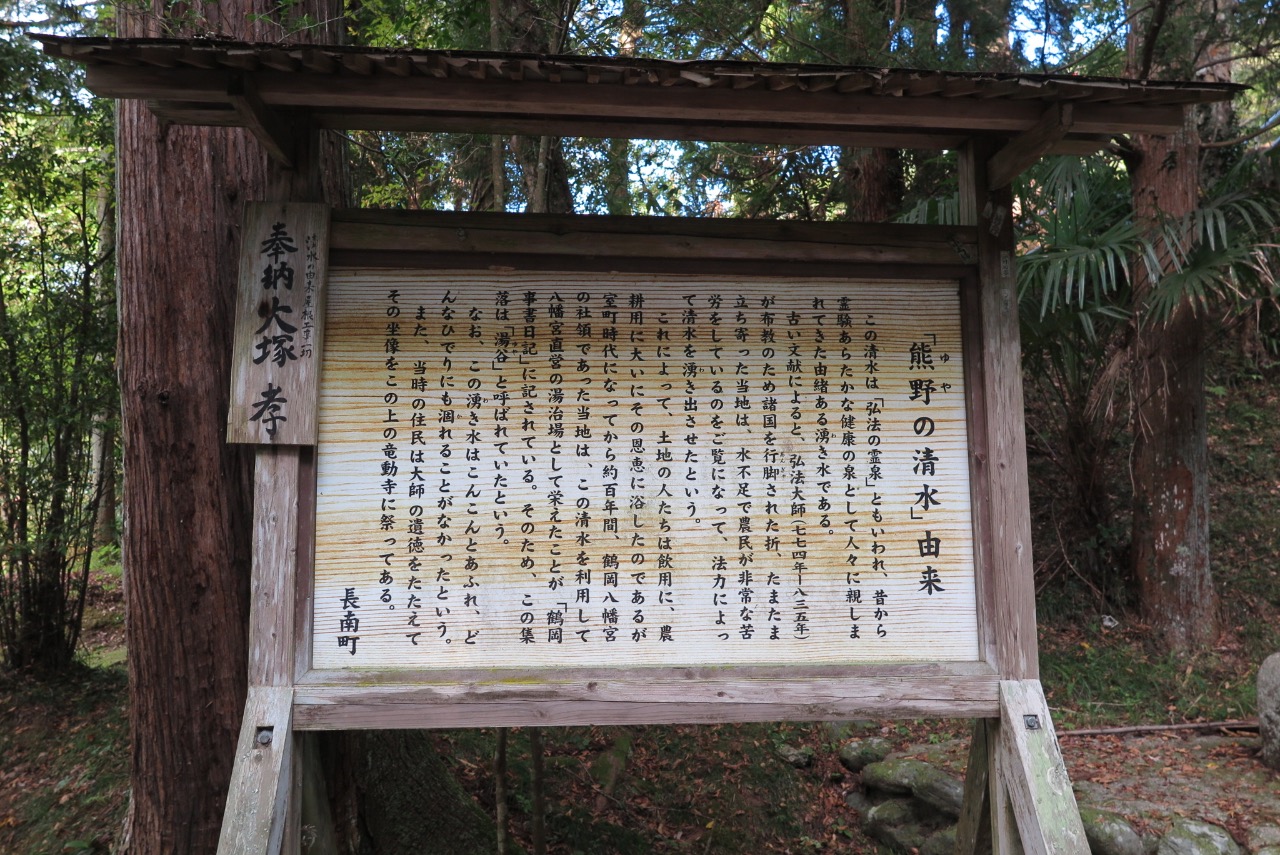 「熊野の清水」由来
ゆや
この清水は「弘法の霊泉」ともいわれ、昔から
霊験あらたかな健康の泉として人々に親しま
れてきた由緒ある湧き水である。
古い文献によると、弘法大師(七七四年ー八三五年)
が布教のため諸国を行脚された折、たまたま
立ち寄った当地は、水不足で農民が非常な苦
労をしているのをご覧になって、法力によっ
て清水を湧き出させたという。
これによって、土地の人たちは飲用に、農
耕用に大いにその恩恵に浴したのであるが
室町時代になってから約百年間、鶴岡八幡宮
の社領であった当地は、この清水を利用して
八幡宮直営の湯治場として栄えたことが「鶴岡
事書日記」に記されている。そのため、この集
落は「湯谷」と呼ばれていたという。
なお、この湧き水はこんこんとあふれ、ど
んなひでりにも涸れることがなかったという。
また、当時の住民は大師の遺徳をたたえて
その坐像をこの上の竜動寺に祭ってある。
長南町
奉納 大塚 孝